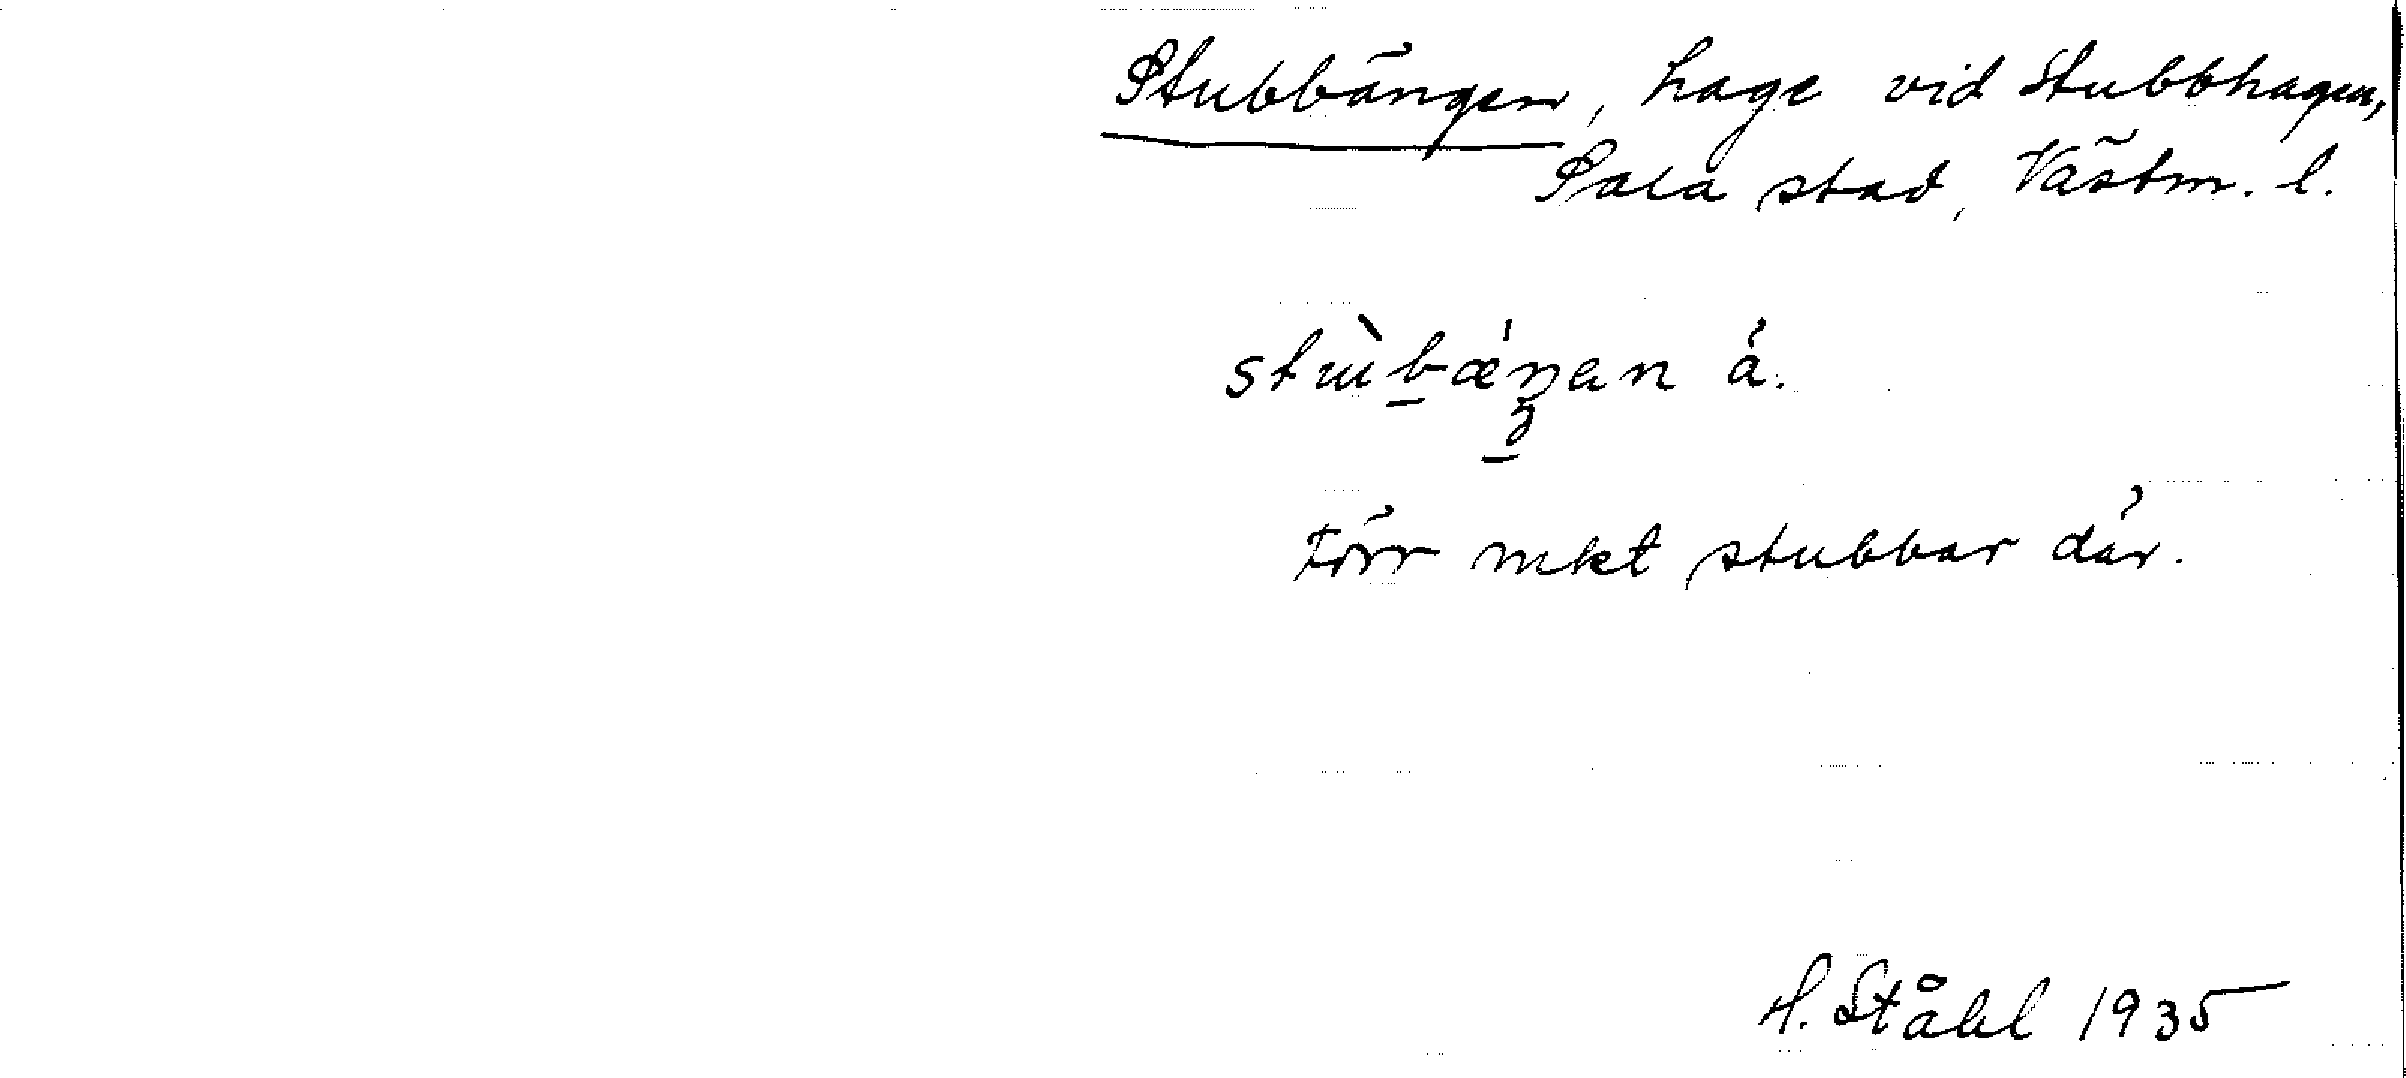 Stubbängen, hage vid Stubbhagen,
Sala stad, Västm. l.
stùbæ´ŋen å.
Förr mkt stubbar där.
H. Ståhl 1935